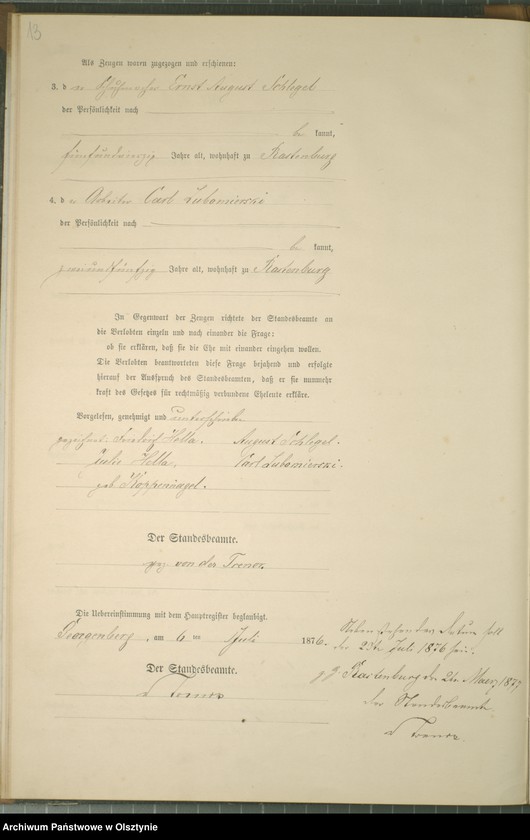 13
Als Zeugen waren zugezogen und erschienen:
3. der Schuhmacher Ernst August Schlegel
der Persönlichkeit nach
bekannt,
fünfundzwanzig Jahre alt, wohnhaft zu Rastenburg
4. der Arbeiter Carl Lubomierski
der Persönlichkeit nach
bekannt,
zweiundfünfzig Jahre alt, wohnhaft zu Rastenburg
In Gegenwart der Zeugen richtete der Standesbeamte an
die Verlobten einzeln und nach einander die Frage:
ob sie erklären, daß sie die Ehe mit einander eingehen wollen.
Die Verlobten beantworteten diese Frage bejahend und erfolgte
hierauf der Ausspruch des Standesbeamten, daß er sie nunmehr
kraft des Gesetzes für rechtmäßig verbundene Eheleute erkläre.
Vorgelesen, genehmigt und unterschrieben
gezeichnet. Friedrich Hella. August Schlegel.
Julie Hella. Carl Lubomierski.
geb Koppennagel.
Der Standesbeamte.
gez von der Trenck
Die Uebereinstimmung mit dem Hauptregister beglaubigt.
Georgenberg, am 6 ten Juli 1876.
Der Standesbeamte.
v Trenck
Nebenstehendes Datum soll
der 23te Juli 1876 sein.
Rastenburg den 2ten Maerz 1877
Der Standesbeamte
v Trenck.
Archiwum Państwowe w Olsztynie